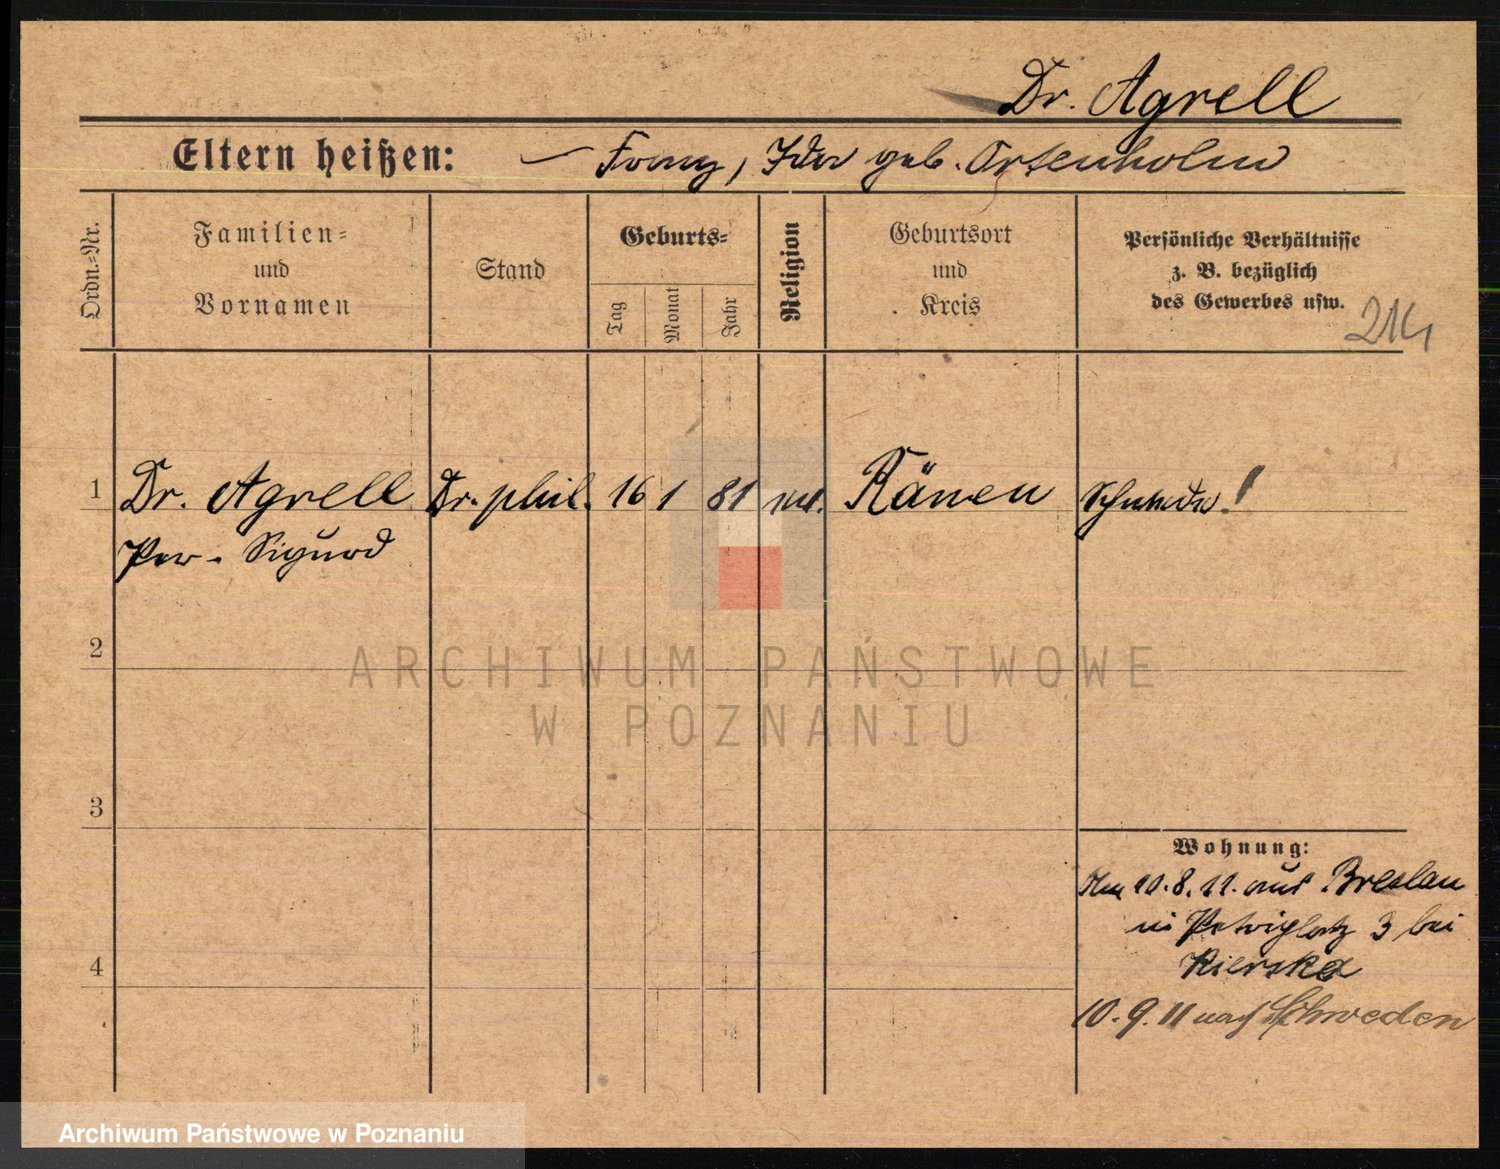 Dr. Agrell
Eltern heißen: Franz, Ida geb. Ortenholm
Ordn.-Nr.
Familien-
und
Vornamen
Stand
Geburts-
Tag
Monat
Jahr
Religion
Geburtsort
und
Kreis
Persönliche Verhältnisse
z. B. bezüglich
des Gewerbes usw.
214
1 Dr. Agrell Dr. phil. 16 1 81 Rämen Schwede!
Per-Sigurd
2
3
4
Wohnung:
10.8.11. aus Breslau
in Petriplatz 3 bei
Kierska
10.9.11 nach Schweden
ARCHIWUM PAŃSTWOWE
W POZNANIU
Archiwum Państwowe w Poznaniu